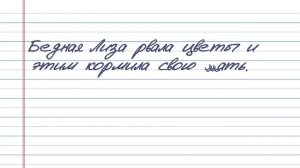 Бедная Лиза рвала цветы и
этим кормила свою мать.